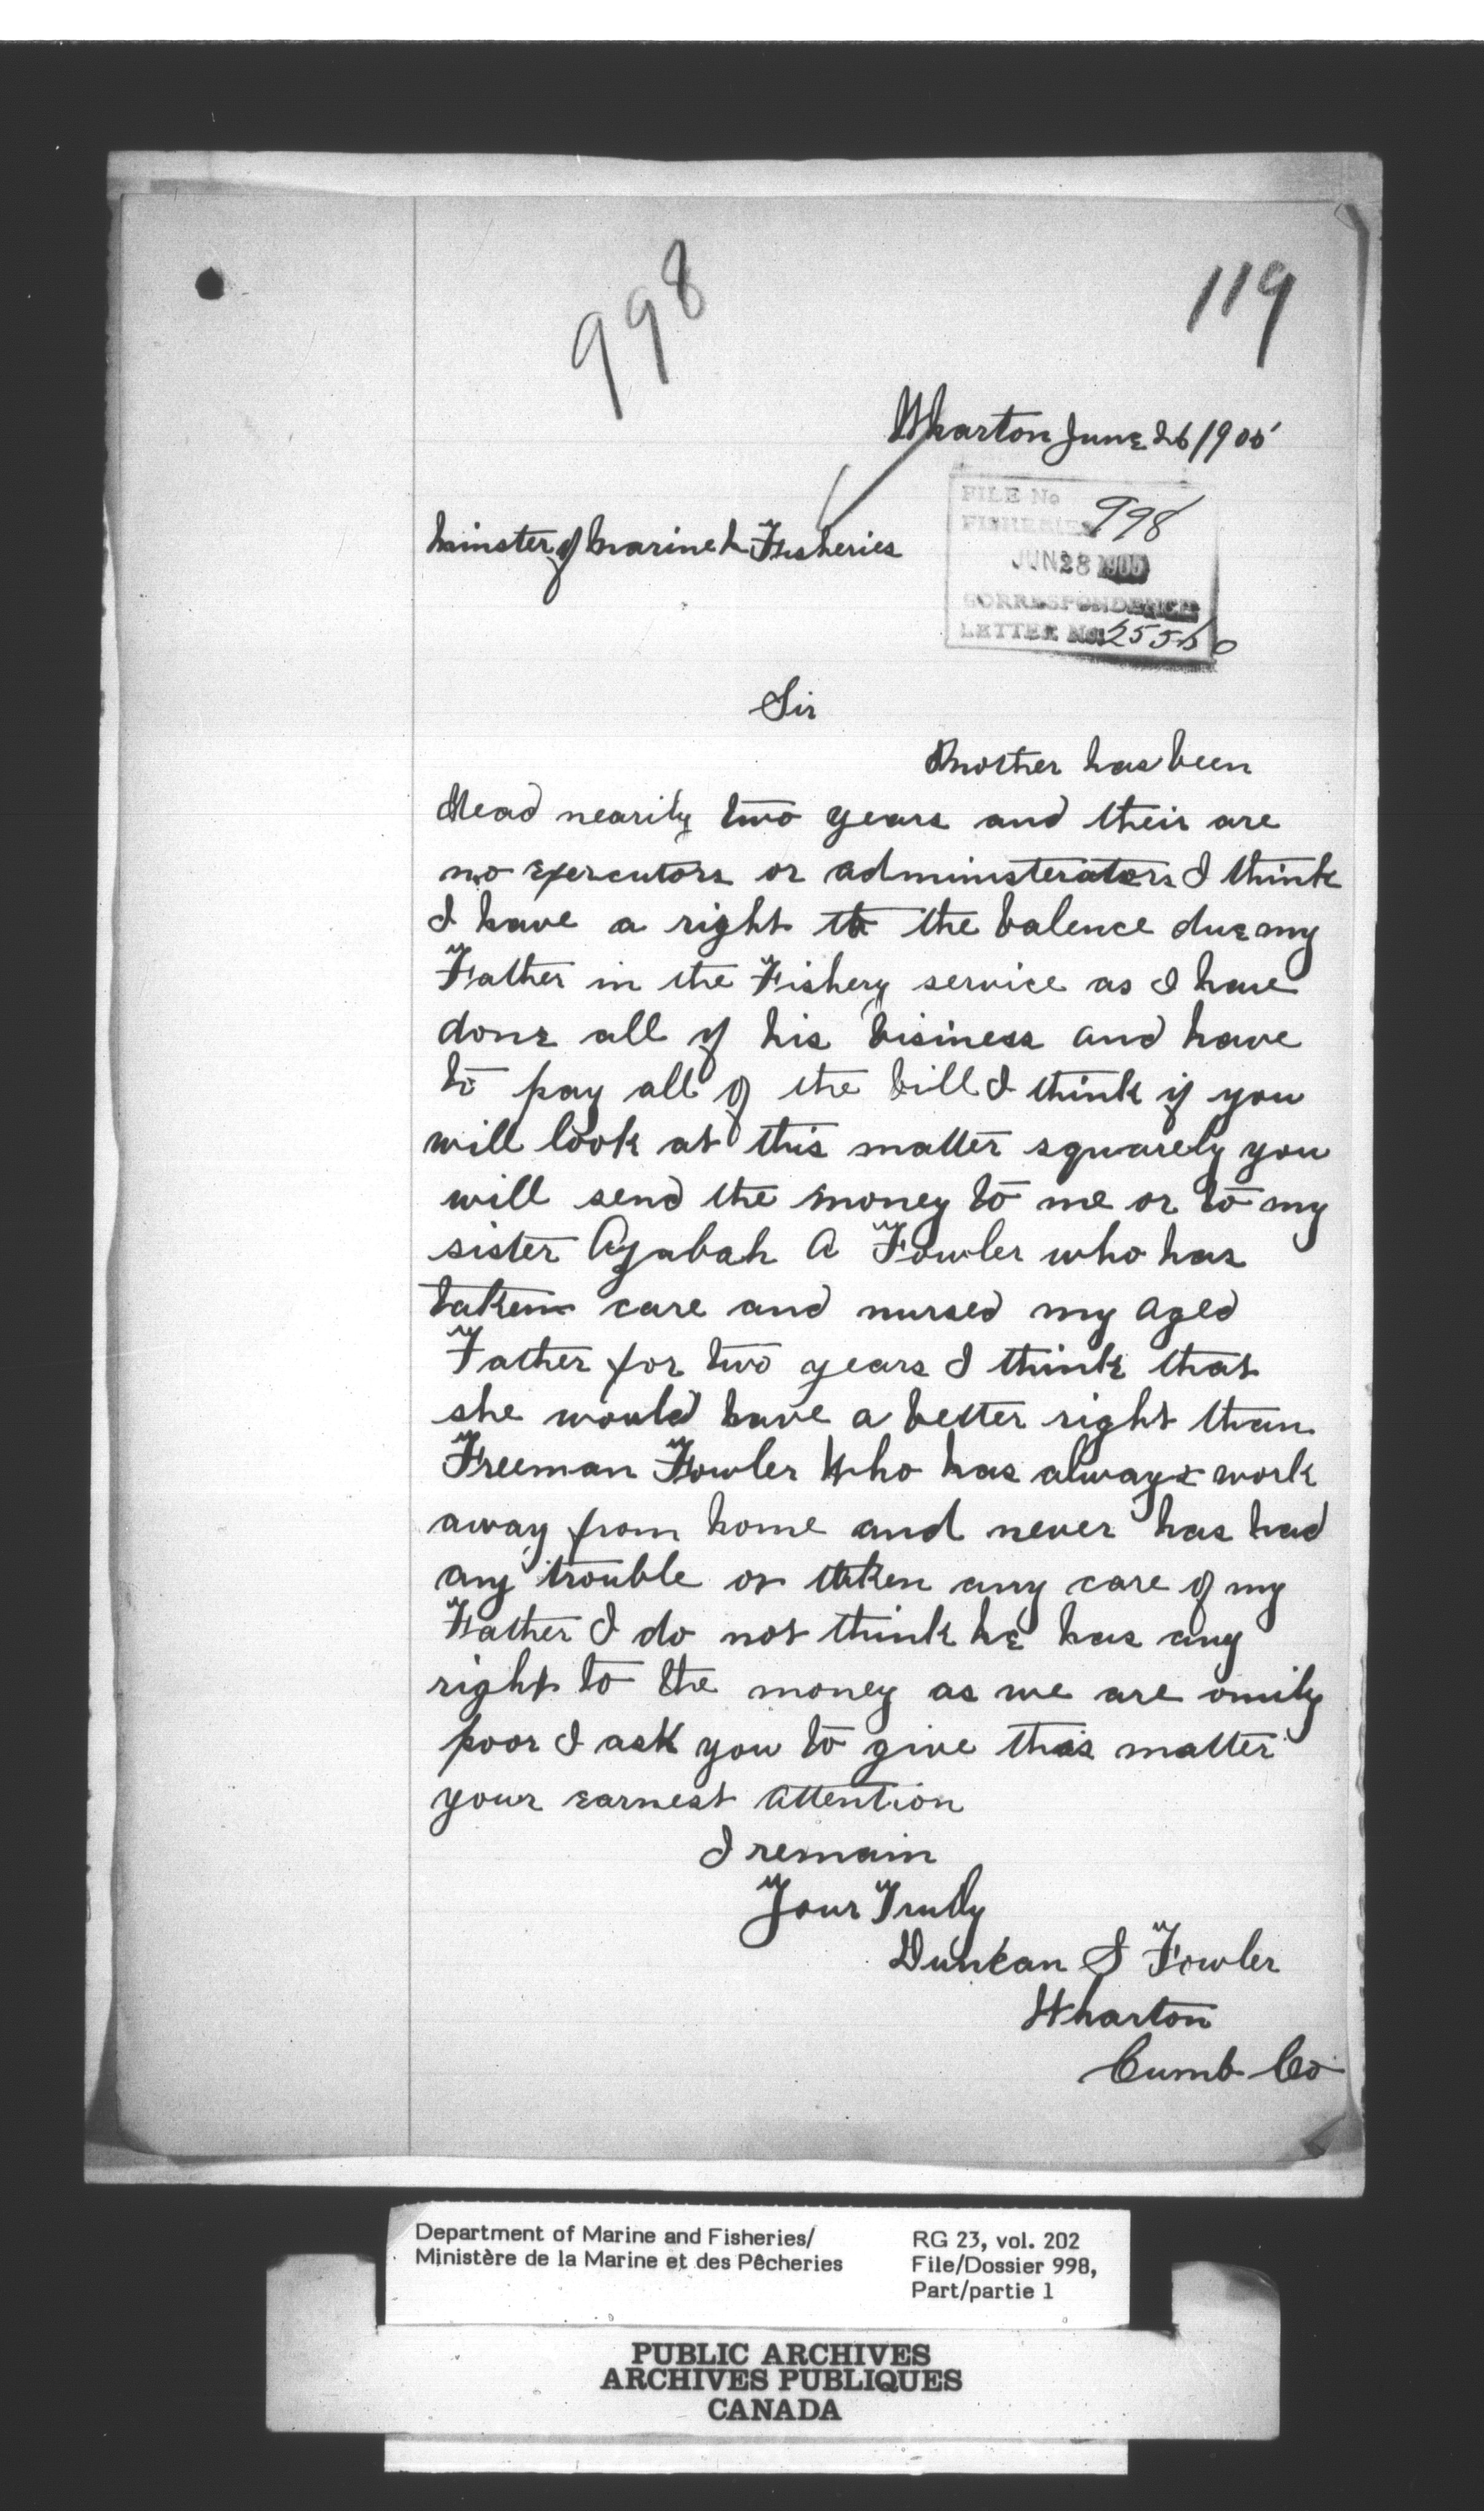 998
119
Wharton June 26/1905
Minster of Marine & Fisheries
FILE No 998
FISHERIES
JUN 28 1905
CORRESPONDENCE
LETTER No.
Sir
Mother has been
dead nearily two years and their are
no exercutors or administerators I think
I have a right to the balence due my
Father in the Fishery service as I have
done all of his bisiness and have
to pay all of the bill I think if you
will look at this matter squarely you
will send the money to me or to my
sister Azubah A Fowler who has
taken care and nursed my aged
Father for two years I think that
she would have a better right than
Freeman Fowler who has always work
away from home and never has had
any trouble or taken any care of my
Father I do not think he has any
right to the money as we are onnily
poor I ask you to give this matter
your earnest attention
I remain
Your Truly
Duncan S Fowler
Wharton
Cumb Co
Department of Marine and Fisheries/
Ministère de la Marine et des Pêcheries
RG 23, vol. 202
File/Dossier 998,
Part/partie 1
PUBLIC ARCHIVES
ARCHIVES PUBLIQUES
CANADA